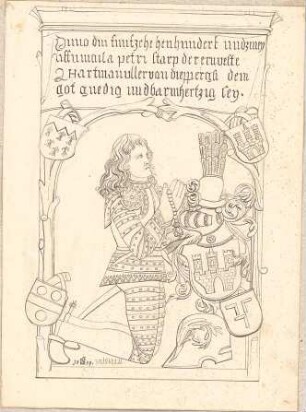 Anno dm funfzehe henhundert undzwey
uff vincula petri starp der ernveste
Hartman ulner von dieppergk dem
got gnedig und barmhertzig sey.